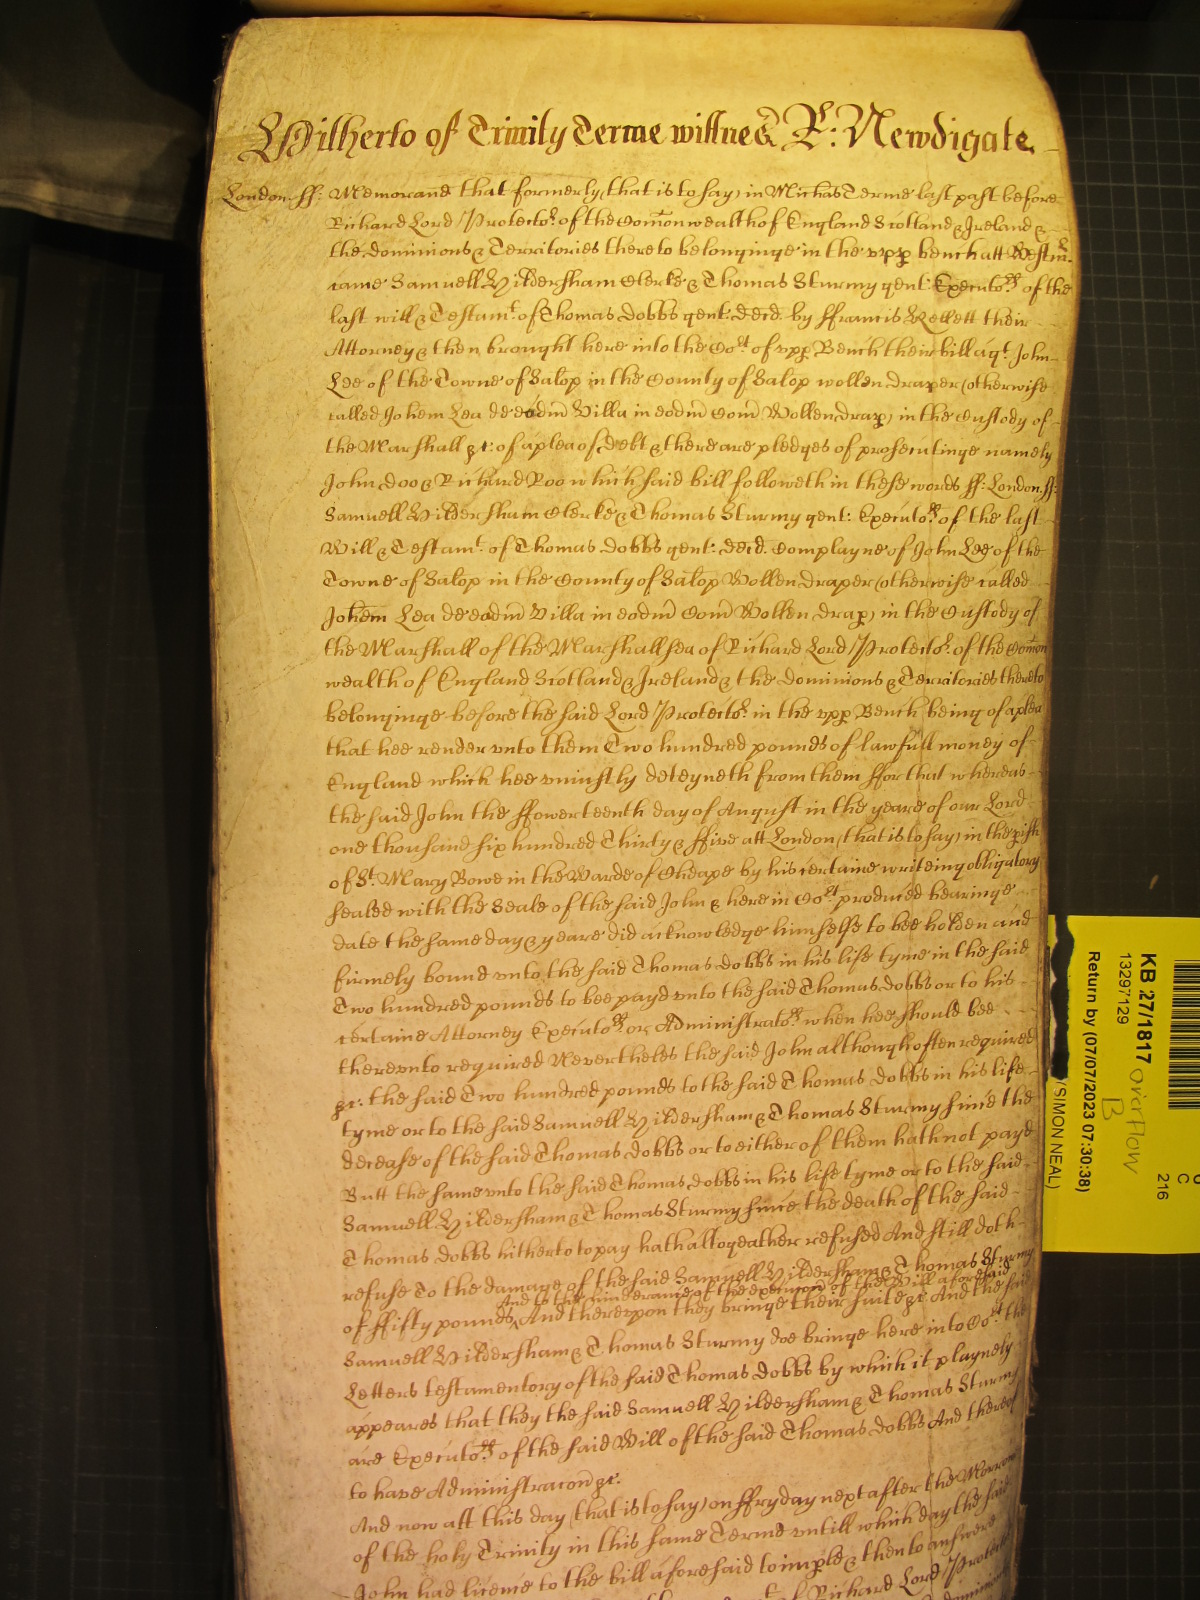 Hitherto of Trinity Terme wittnes R: Newdigate
London ss: Memorand that formerly (that is to say) in Michas Terme last past before
Richard Lord Protector of the Comonwealth of England Scotland & Ireland &
the dominions & Territories thereto belonginge in the upp bench att Westm.
came Samuell Hildersham Clerke & Thomas Sturmy gent: Executors of the
last will & Testamt. of Thomas Dobbs gent: decd. by ffrancis Kellett their
Attorney & then brought here into the Cort of upp Bench their bill agt. John
Lee of the Towne of Salop in the County of Salop wollen draper (otherwise
called Johem Lea de eadm Villa in eodm Com Wollendrap) in the Custody of
the Marshall &c: of a plea of debt & there are pledges of prosecutinge namely
John Doo & Richard Roo which said bill followeth in these words ss: London ss:
Samuell Hildersham Clerke & Thomas Sturmy gent: Executors of the last
Will & Testamt. of Thomas Dobbs gent: decd. Complayne of John Lee of the
Towne of Salop in the County of Salop Wollen draper (otherwise called
Johem Lea de eadm Villa in eodm Com Wollen drap) in the Custody of
the Marshall of the Marshallsea of Richard Lord Protector. of the Comon
wealth of England Scotland & Ireland & the dominions & Territories thereto
belonginge before the said Lord Protector. in the upp Bench being of a plea
that hee render unto them Two hundred pounds of lawfull money of
England which hee uniustly deteyneth from them ffor that whereas
the said John the ffowerteenth day of August in the yeare of our Lord
one thousand six hundred Thirty & ffive att London (that is to say) in the pish
of St. Mary Bowe in the Warde of Cheape by his certaine writeing obligatory
sealed with the Seale of the said John & here in Cort produced bearinge
date the same day & yeare did acknowledge himselfe to bee holden and
firmely bound unto the said Thomas Dobbs in his life tyme in the said
Two hundred pounds to bee payd unto the said Thomas Dobbs or to his
certaine Attorney Executors or Administrators when hee should bee
thereunto required Nevertheles the said John although often required
&c: the said Two hundred pounds to the said Thomas Dobbs in his life
tyme or to the said Samuell Hildersham & Thomas Sturmy since the
decease of the said Thomas Dobbs or to either of them hath not payd
Butt the same unto the said Thomas Dobbs in his life tyme or to the said
Samuell Hildersham & Thomas Sturmy since the death of the said
Thomas Dobbs hitherto to pay hath altogeather refused And still doth
refuse To the damage of the said Samuell Hildersham & Thomas Sturmy
And to the hinderance of the execucon of the Will aforesaid
of ffifty pounds And thereupon they bringe their suite &c: And the said
Samuell Hildersham & Thomas Sturmy doe bringe here into Cort the
Letters testamentory of the said Thomas Dobbs by which it playnely
appeares that they the said Samuell Hildersham & Thomas Sturmy
are Executors of the said Will of the said Thomas Dobbs And thereof
to have Administracon &c:
And now att this day (that is to say) on ffryday next after the Morrow
of the holy Trinity in this same Terme untill which day the said
John had licence to the bill aforesaid to imple & then to answere
Richard Lord Protector
KB 27/1817
13297129
overflow
B
Return by (07/07/2023 07:30:38)
(SIMON NEAL)
C
216